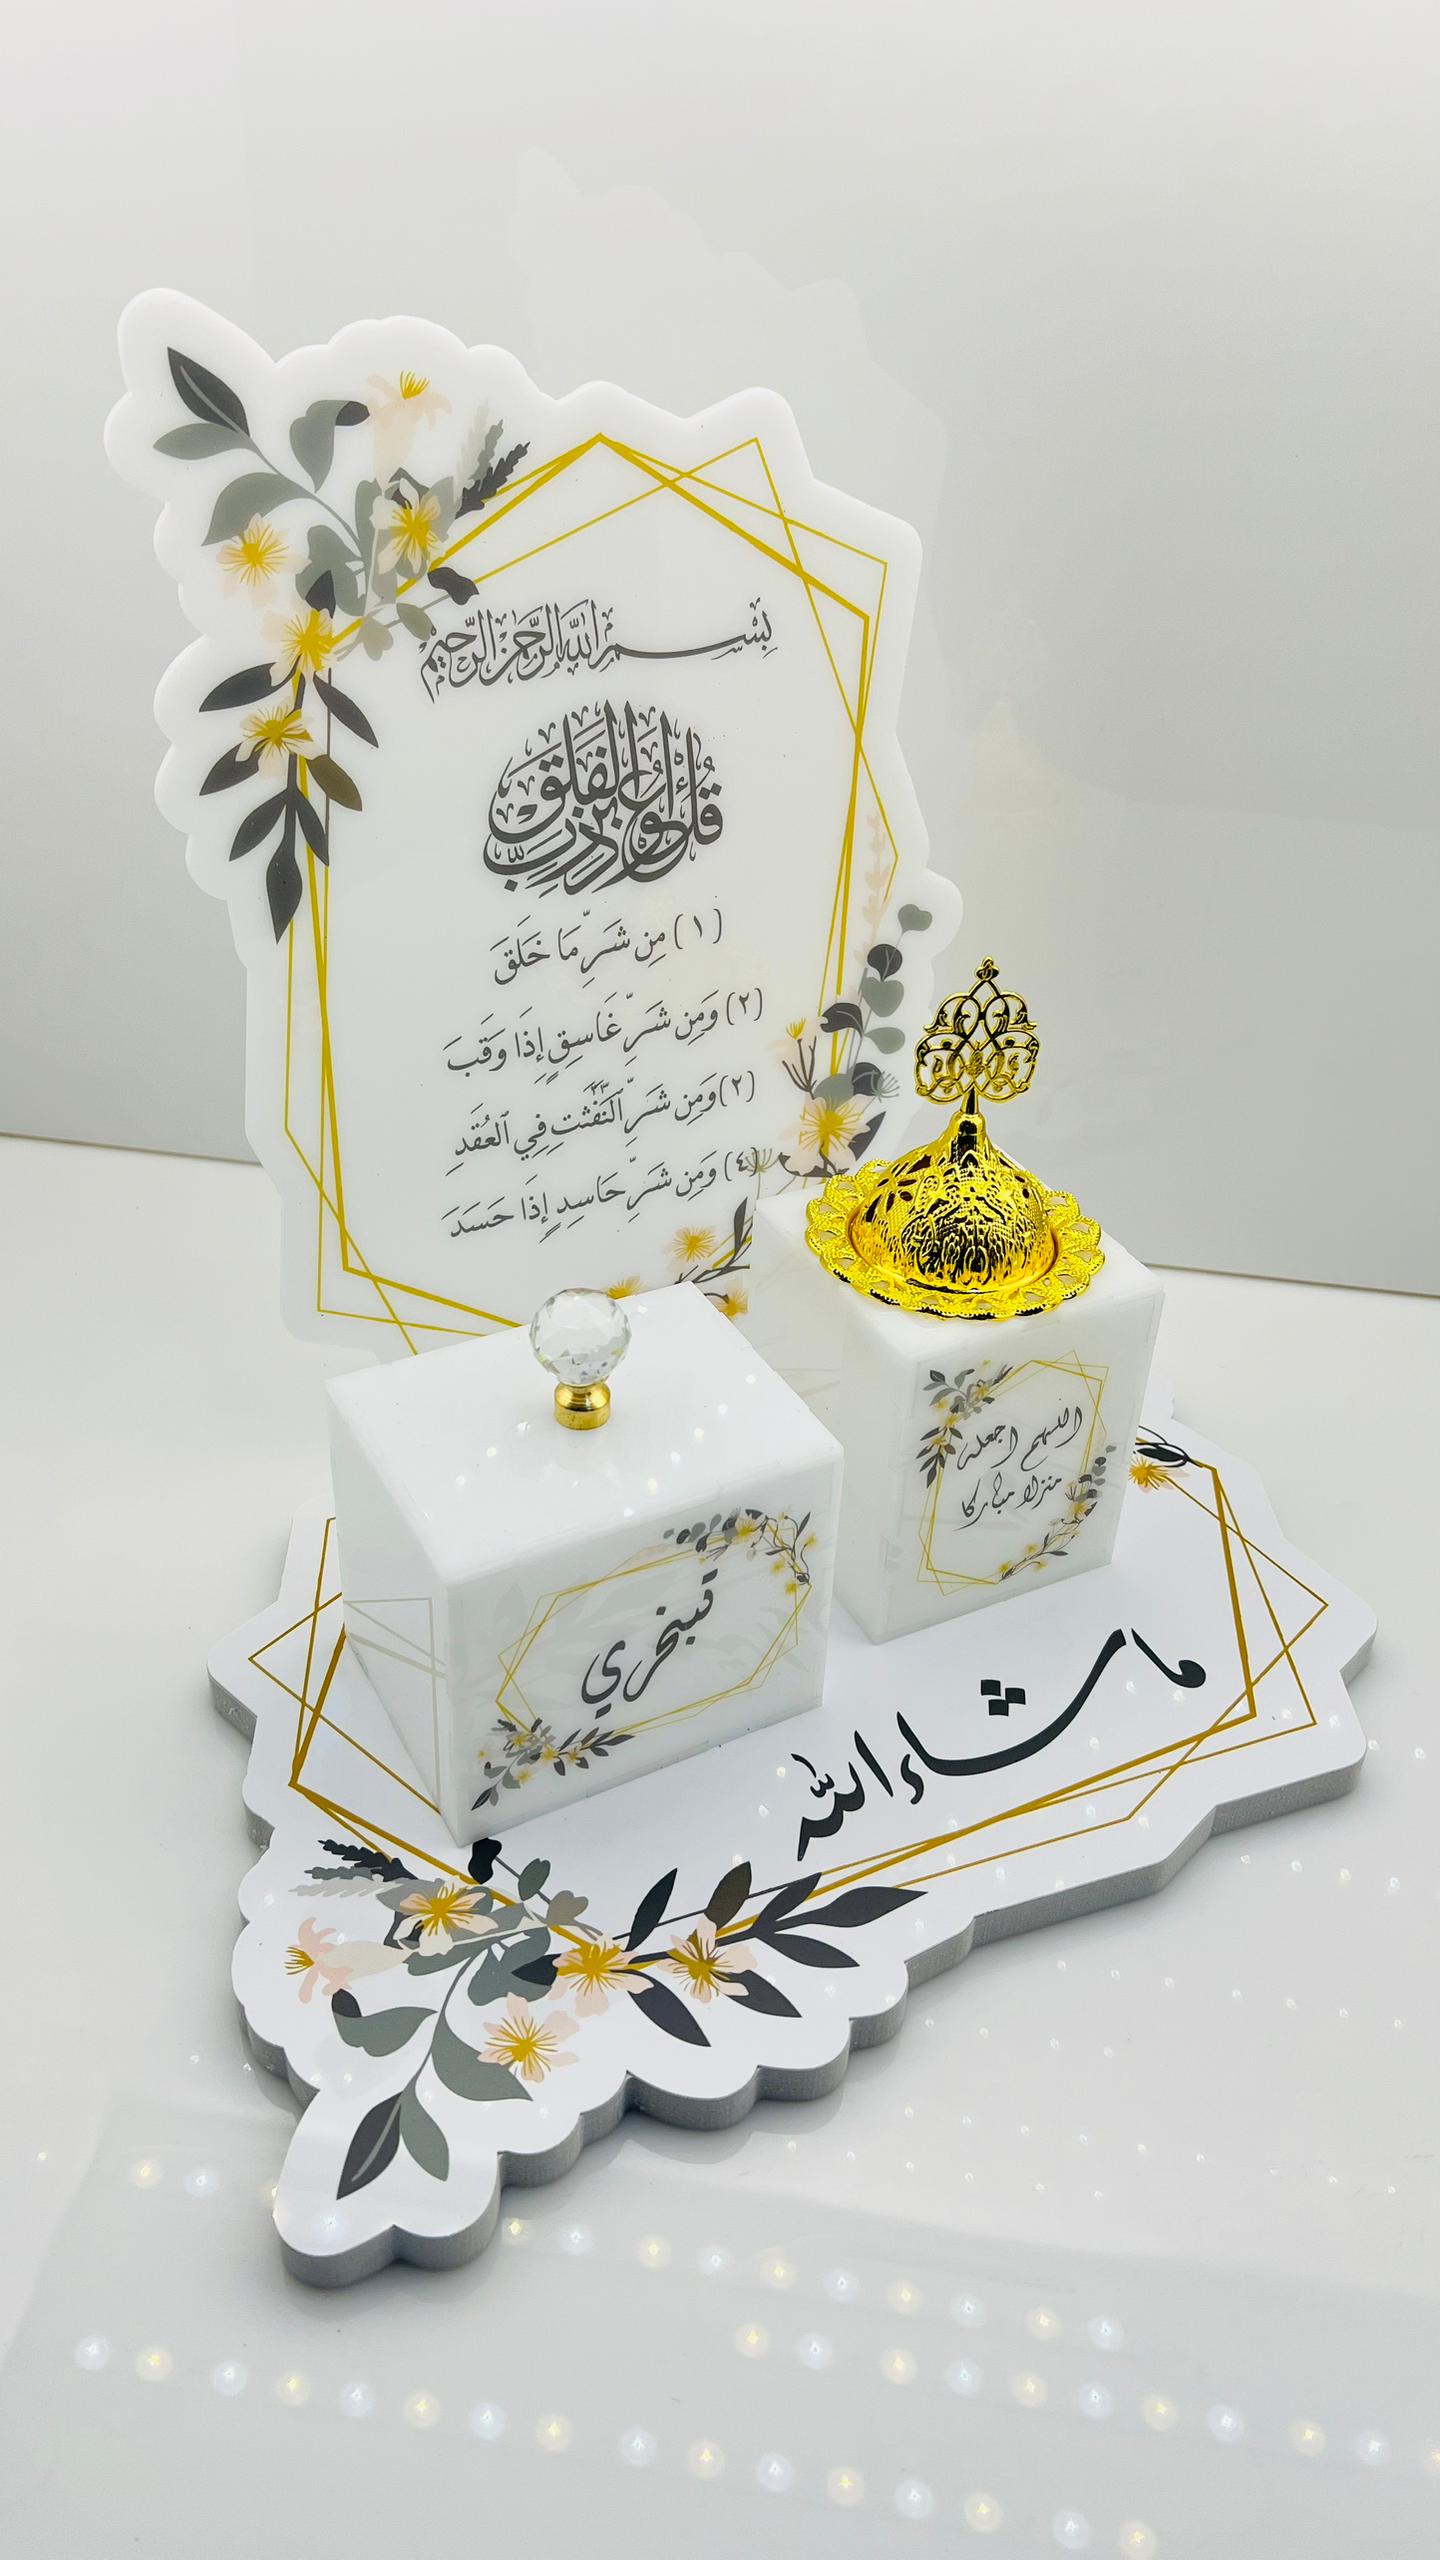 بِسْمِ اللَّهِ الرَّحْمَنِ الرَّحِيمِ
قُلْ أَعُوذُ بِرَبِّ الْفَلَقِ
(١) مِن شَرِّ مَا خَلَقَ
(٢) وَمِن شَرِّ غَاسِقٍ إِذَا وَقَبَ
(٢) وَمِن شَرِّ ٱلنَّفَّٰثَٰتِ فِي ٱلْعُقَدِ
(٤) وَمِن شَرِّ حَاسِدٍ إِذَا حَسَدَ
اللهم اجعله
منزلا مباركا
تبخري
ما شاء الله